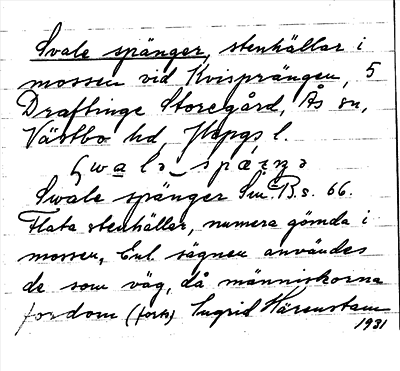 Svale spänger, stenhällar i
mossen vid Kvisprängen, 5
Draftinge Storegård, Ås sn,
Västbo hd, Jkpgs l.
Svale spänger Sm. B. s. 66.
Flata stenhällar, numera gömda i
mossen, Enl. sägnen användes
de som väg, då människorna
fordom (forts) Ingrid Härenstam
1931